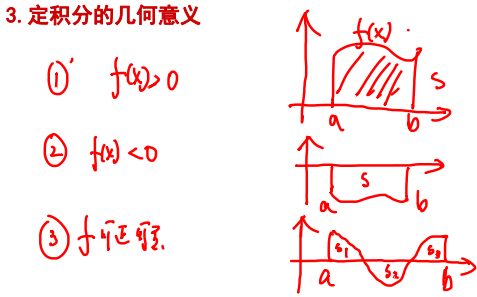 3.定积分的几何意义
① f(x)>0
f(x)
S
a b
② f(x)<0
S
a b
③ f 可正可负.
S1 S2 S3
a b